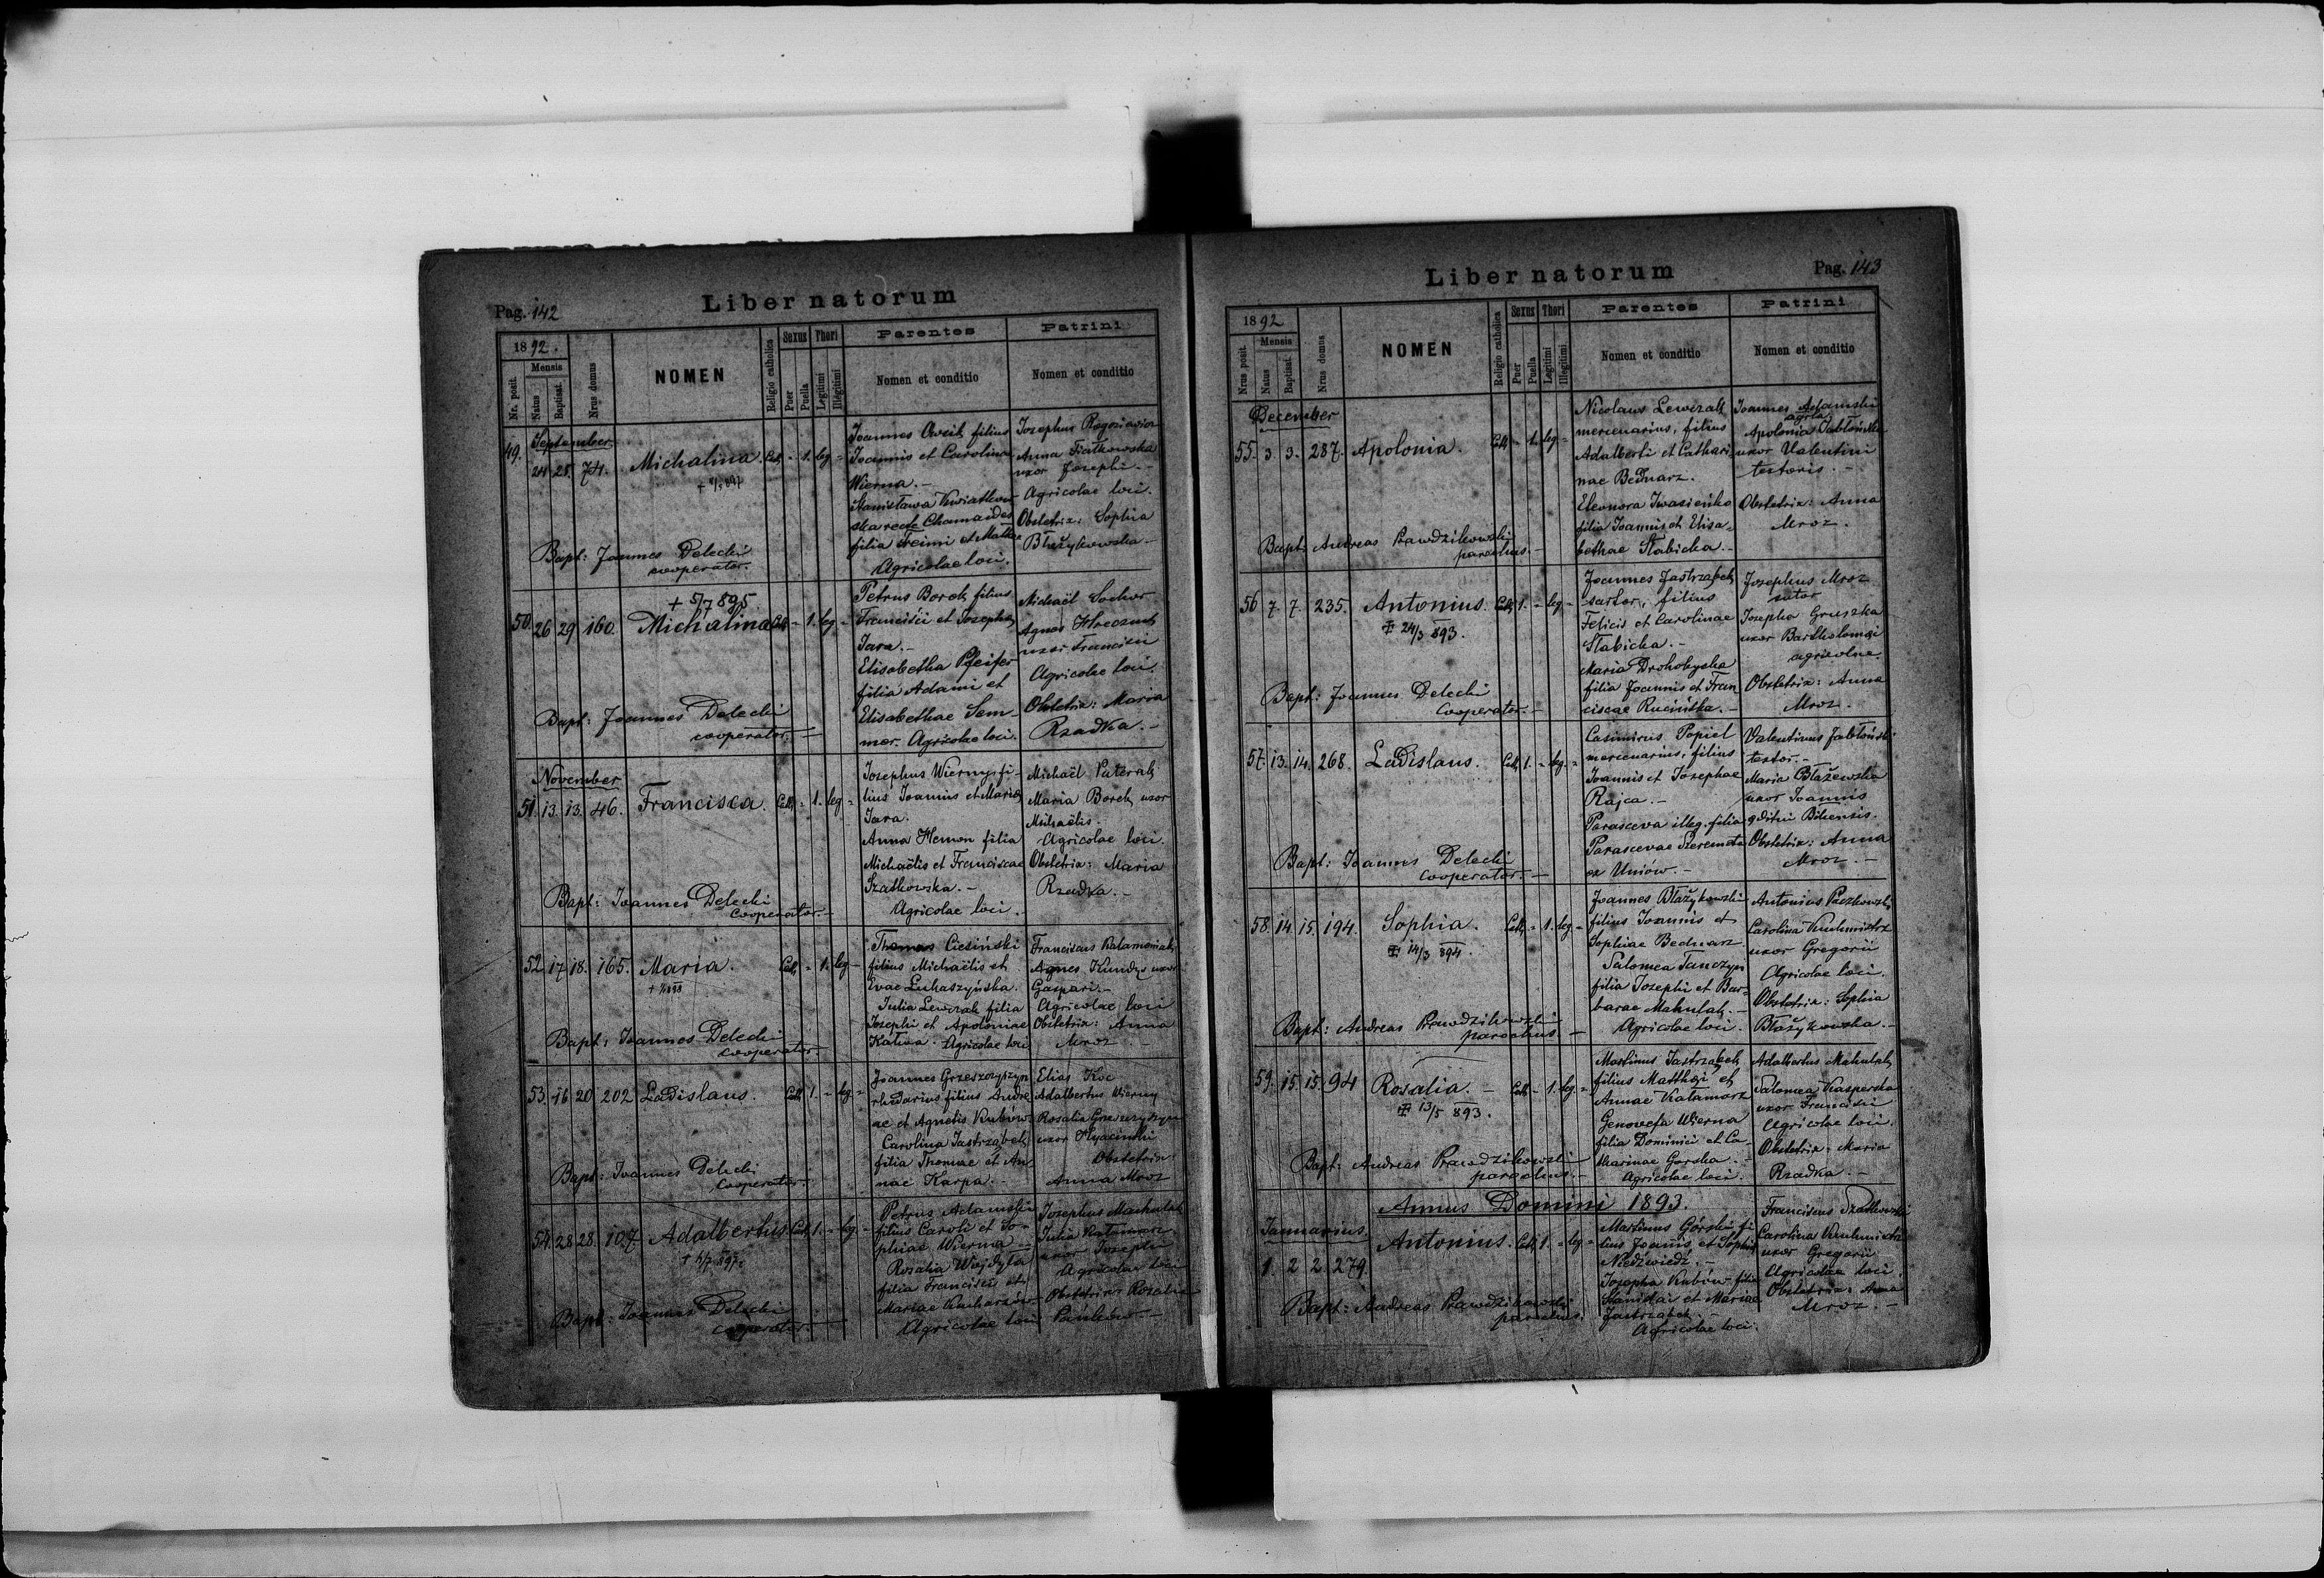 Pag. 142
Liber natorum
1892.
Nr. posit.
Mensis
Natus
Baptisat.
Nrus domus
NOMEN
Religio catholica
Sexus
Puer
Puella
Thori
Legitimi
Illegitimi
Parentes
Nomen et conditio
Patrini
Nomen et conditio
September
49. 24 25. 74. Michalina. Cath. - 1. leg. -
Joannes Cweik filius
Joannis et Carolinae
Wierna. -
Stanisława Kwiatkow-
ska recte Chamaides
filia
Agricolae loci.
Josephus Rogoziewicz
Anna Fiałkowska
uxor Josephi. -
Agricolae loci.
Obstetrix: Sophia
Błażykowska -
Bapt: Joannes Delecki
cooperator.
+ 5/7 895.
50. 26 29 160. Michalina Cath. - 1. leg. -
Petrus Borek filius
Francisci et Josephae
Jara. -
Elisabetha Pfeifer
filia Adami et
Elisabethae Sem-
mer. Agricolae loci.
Michaël Sochor
Agnes Hreczuch
uxor Francisci
Agricolae loci.
Obstetrix: Maria
Rzadka. -
Bapt: Joannes Delecki
cooperator. -
November
51. 13. 13. 46. Francisca. Cath. - 1. leg. -
Josephus Wierny fi-
lius Joannis et Mariae
Jara.
Anna Hemon filia
Michaëlis et Franciscae
Szatkowska. -
Agricolae loci.
Michaël Puterak
Maria Borek uxor
Michaëlis.
Agricolae loci.
Obstetrix: Maria
Rzadka. -
Bapt: Joannes Delecki
Cooperator. -
52. 17 18. 165. Maria. Cath. - 1. leg. -
Thomas Ciesiński
filius Michaëlis et
Evae Łukaszyńska.
Julia Lewczak filia
Josephi et Apoloniae
Kałwa. Agricolae loci
Franciscus
Agnes Kundys uxor
Gaspari. -
Agricolae loci
Obstetrix: Anna
Mroz. -
Bapt: Joannes Delecki
cooperator.
53. 16 20 202 Ladislaus. Cath. 1. - leg. -
Joannes Grzeszczyszyn
rhedarius filius Andre
ae et Agnetis Kubów.
Carolina Jastrząbek
filia Thomae et An-
nae Karpa. -
Elias Koc
Adalbertus Wierny
Rosalia Grzeszczyszyn
uxor Hyacinthi
Obstetrix
Anna Mroz
Bapt: Joannes Delecki
Cooperator.
54. 28 28. 107. Adalbertus. Cath. 1. - leg. -
Petrus Adamski
filius Caroli et So-
phiae Wierna -
Rosalia Wajdyła
filia Francisci et
Mariae Kucharzów
Agricolae loci
Josephus Machulak
Julia
uxor Josephi
Agricolae loci
Obstetrix Rosalia
Pańków. -
Bapt: Joannes Delecki
cooperator. -
Liber natorum
Pag. 143
1892
Nrus posit.
Mensis
Natus
Baptisat.
Nrus domus
NOMEN
Religio catholica
Sexus
Puer
Puella
Thori
Legitimi
Illegitimi
Parentes
Nomen et conditio
Patrini
Nomen et conditio
December
55. 3. 3. 287. Apolonia. Cath. - 1. leg. -
Nicolaus Lewczak
mercenarius, filius
Adalberti et Cathari
nae Bednarz.
Eleonora Iwasieńko
filia Joannis et Elisa-
bethae Słabicka. -
Joannes Adamski
agrla
Apolonia Jabłońska
uxor Valentini
textoris. -
Obstetrix: Anna
Mroz.
Bapt: Andreas Prawdzikowski
parochus. -
56 7. 7. 235. Antonius. Cath. 1. - leg. -
24/3 893.
Joannes Jastrząbek
sartor, filius
Felicis et Carolinae
Słabicka. -
Maria Drohobycka
filia Joannis et Fran
ciscae Rucińska. -
Josephus Mroz
sutor
Josepha Gruszka
uxor Bartholomæi
agricolae.
Obstetrix: Anna
Mroz.
Bapt: Joannes Delecki
Cooperator. -
57. 13. 14. 268. Ladislaus. Cath. 1. - leg. -
Casimirus Popiel
mercenarius, filius
Joannis et Josephae
Rajca. -
Parasceva illeg. filia
Parascevae Szeremeta
ex Uniów. -
Valentinus Jabłoński
textor. -
Maria Błażewska
uxor Joannis
Obstetrix: Anna
Mroz. -
Bapt: Joannes Delecki
Cooperator. -
58. 14. 15. 194. Sophia. Cath. - 1. leg. -
14/3 894.
Joannes Błażykowski
filius Joannis et
Sophiae Bednarz
Salomea Tanczyn
filia Josephi et Bar-
barae Mahulak. -
Agricolae loci.
Antonius Paczkowski
Carolina Kuchmistrz
uxor Gregorii
Agricolae loci.
Obstetrix: Sophia
Błażykowska. -
Bapt: Andreas Prawdzikowski
parochus. -
59. 15. 15. 94 Rosalia. - Cath. - 1. leg. -
13/5 893.
Martinus Jastrząbek
filius Matthæi et
Annae Kałamarz
Genovefa Wierna
filia Dominici et Ca-
tharinae Gorska. -
Agricolae loci.
Adalbertus Mahulak
Salomea Kasperska
uxor Francisci
Agricolae loci.
Obstetrix: Maria
Rzadka. -
Bapt: Andreas Prawdzikowski
parochus. -
Annus Domini 1893.
Januarius
1. 2 2. 279. Antonius. Cath. 1. - leg. -
Martinus Górski fi
lius Joannis et Sophiae
Niedźwiedź. -
Josepha Kubów filia
Stanislai et Mariae
Jastrząbek. -
Agricolae loci.
Franciscus Szatkowski
Carolina Kuchmistrz
uxor Gregorii
Agricolae loci.
Obstetrix: Anna
Mroz. -
Bapt: Andreas Prawdzikowski
parochus.